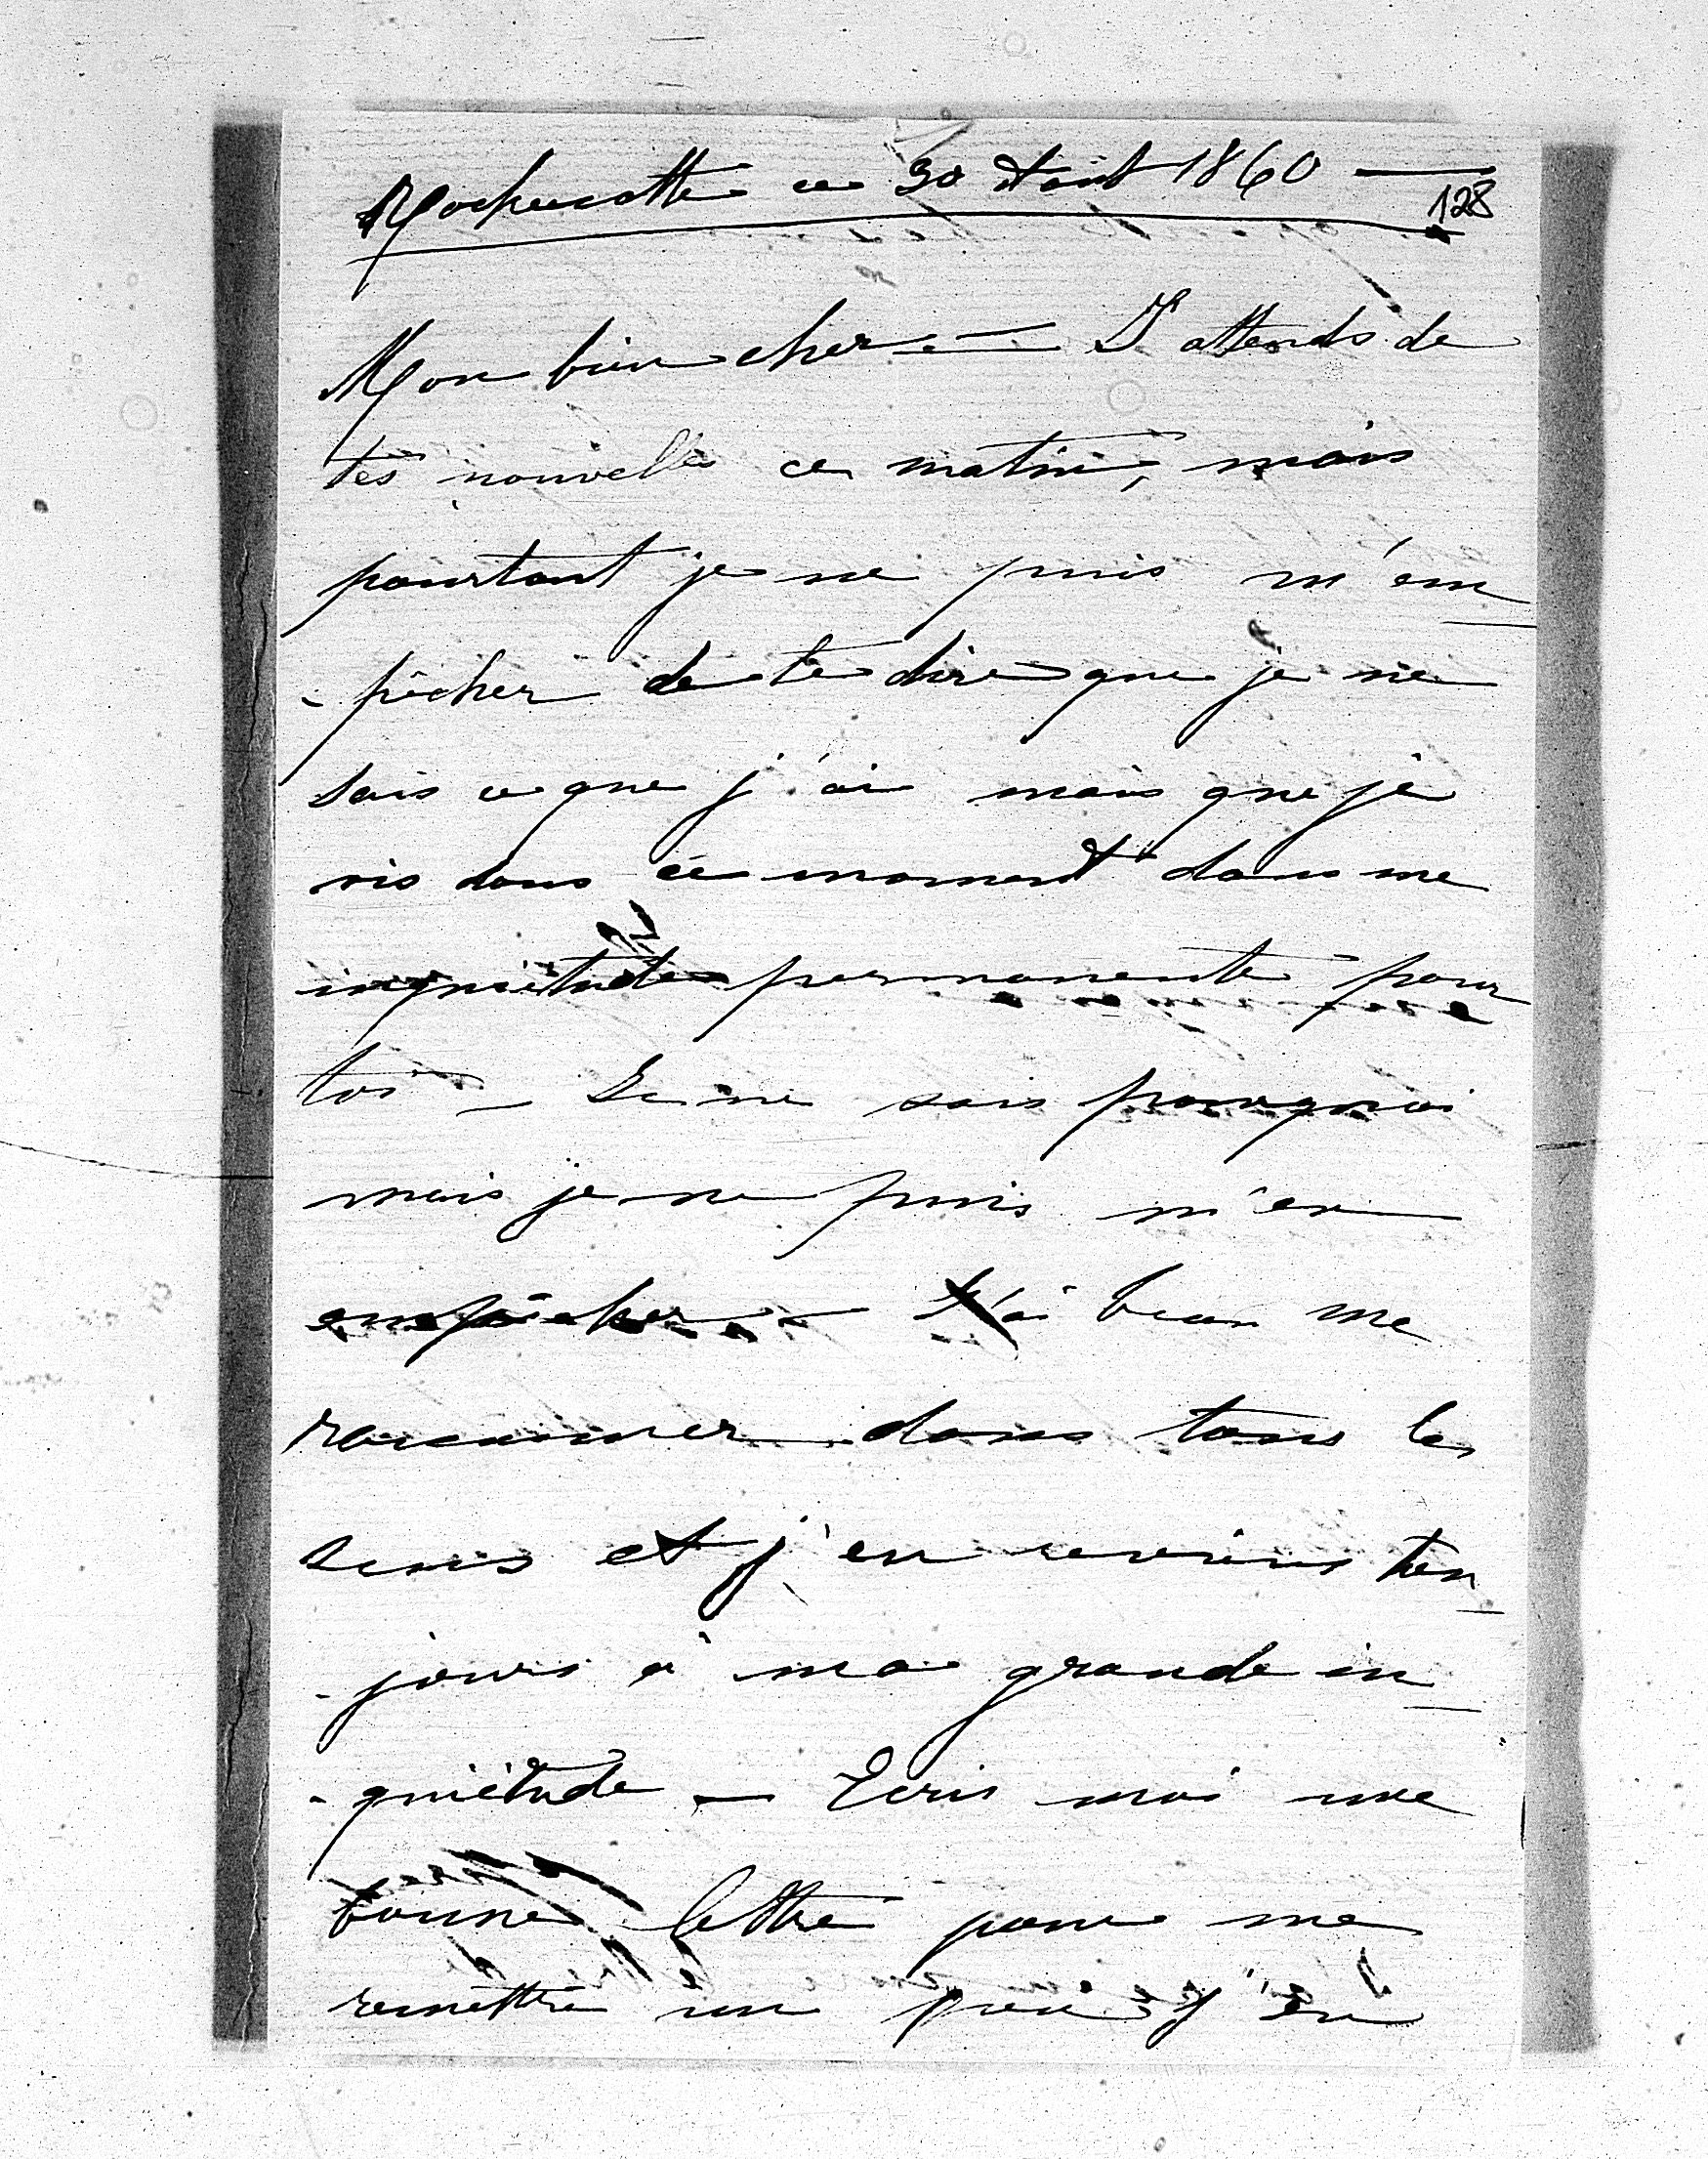 Rochecotte ce 30 Août 1860 —
128
Mon bien cher — J'attends de
tes nouvelles ce matin, mais
pourtant je ne puis m'em
- pêcher de te dire que je ne
sais ce que j'ai mais que je
vis dans ce moment dans une
inquiétude permanente pour
toi — Je ne sais pourquoi
mais je ne puis m'en
empêcher — J'ai beau me
raisonner dans tous les
sens et j'en reviens tou_
- jours à ma grande in_
- quiétude — Ecris moi une
bonne lettre pour me
remettre un peu j'en